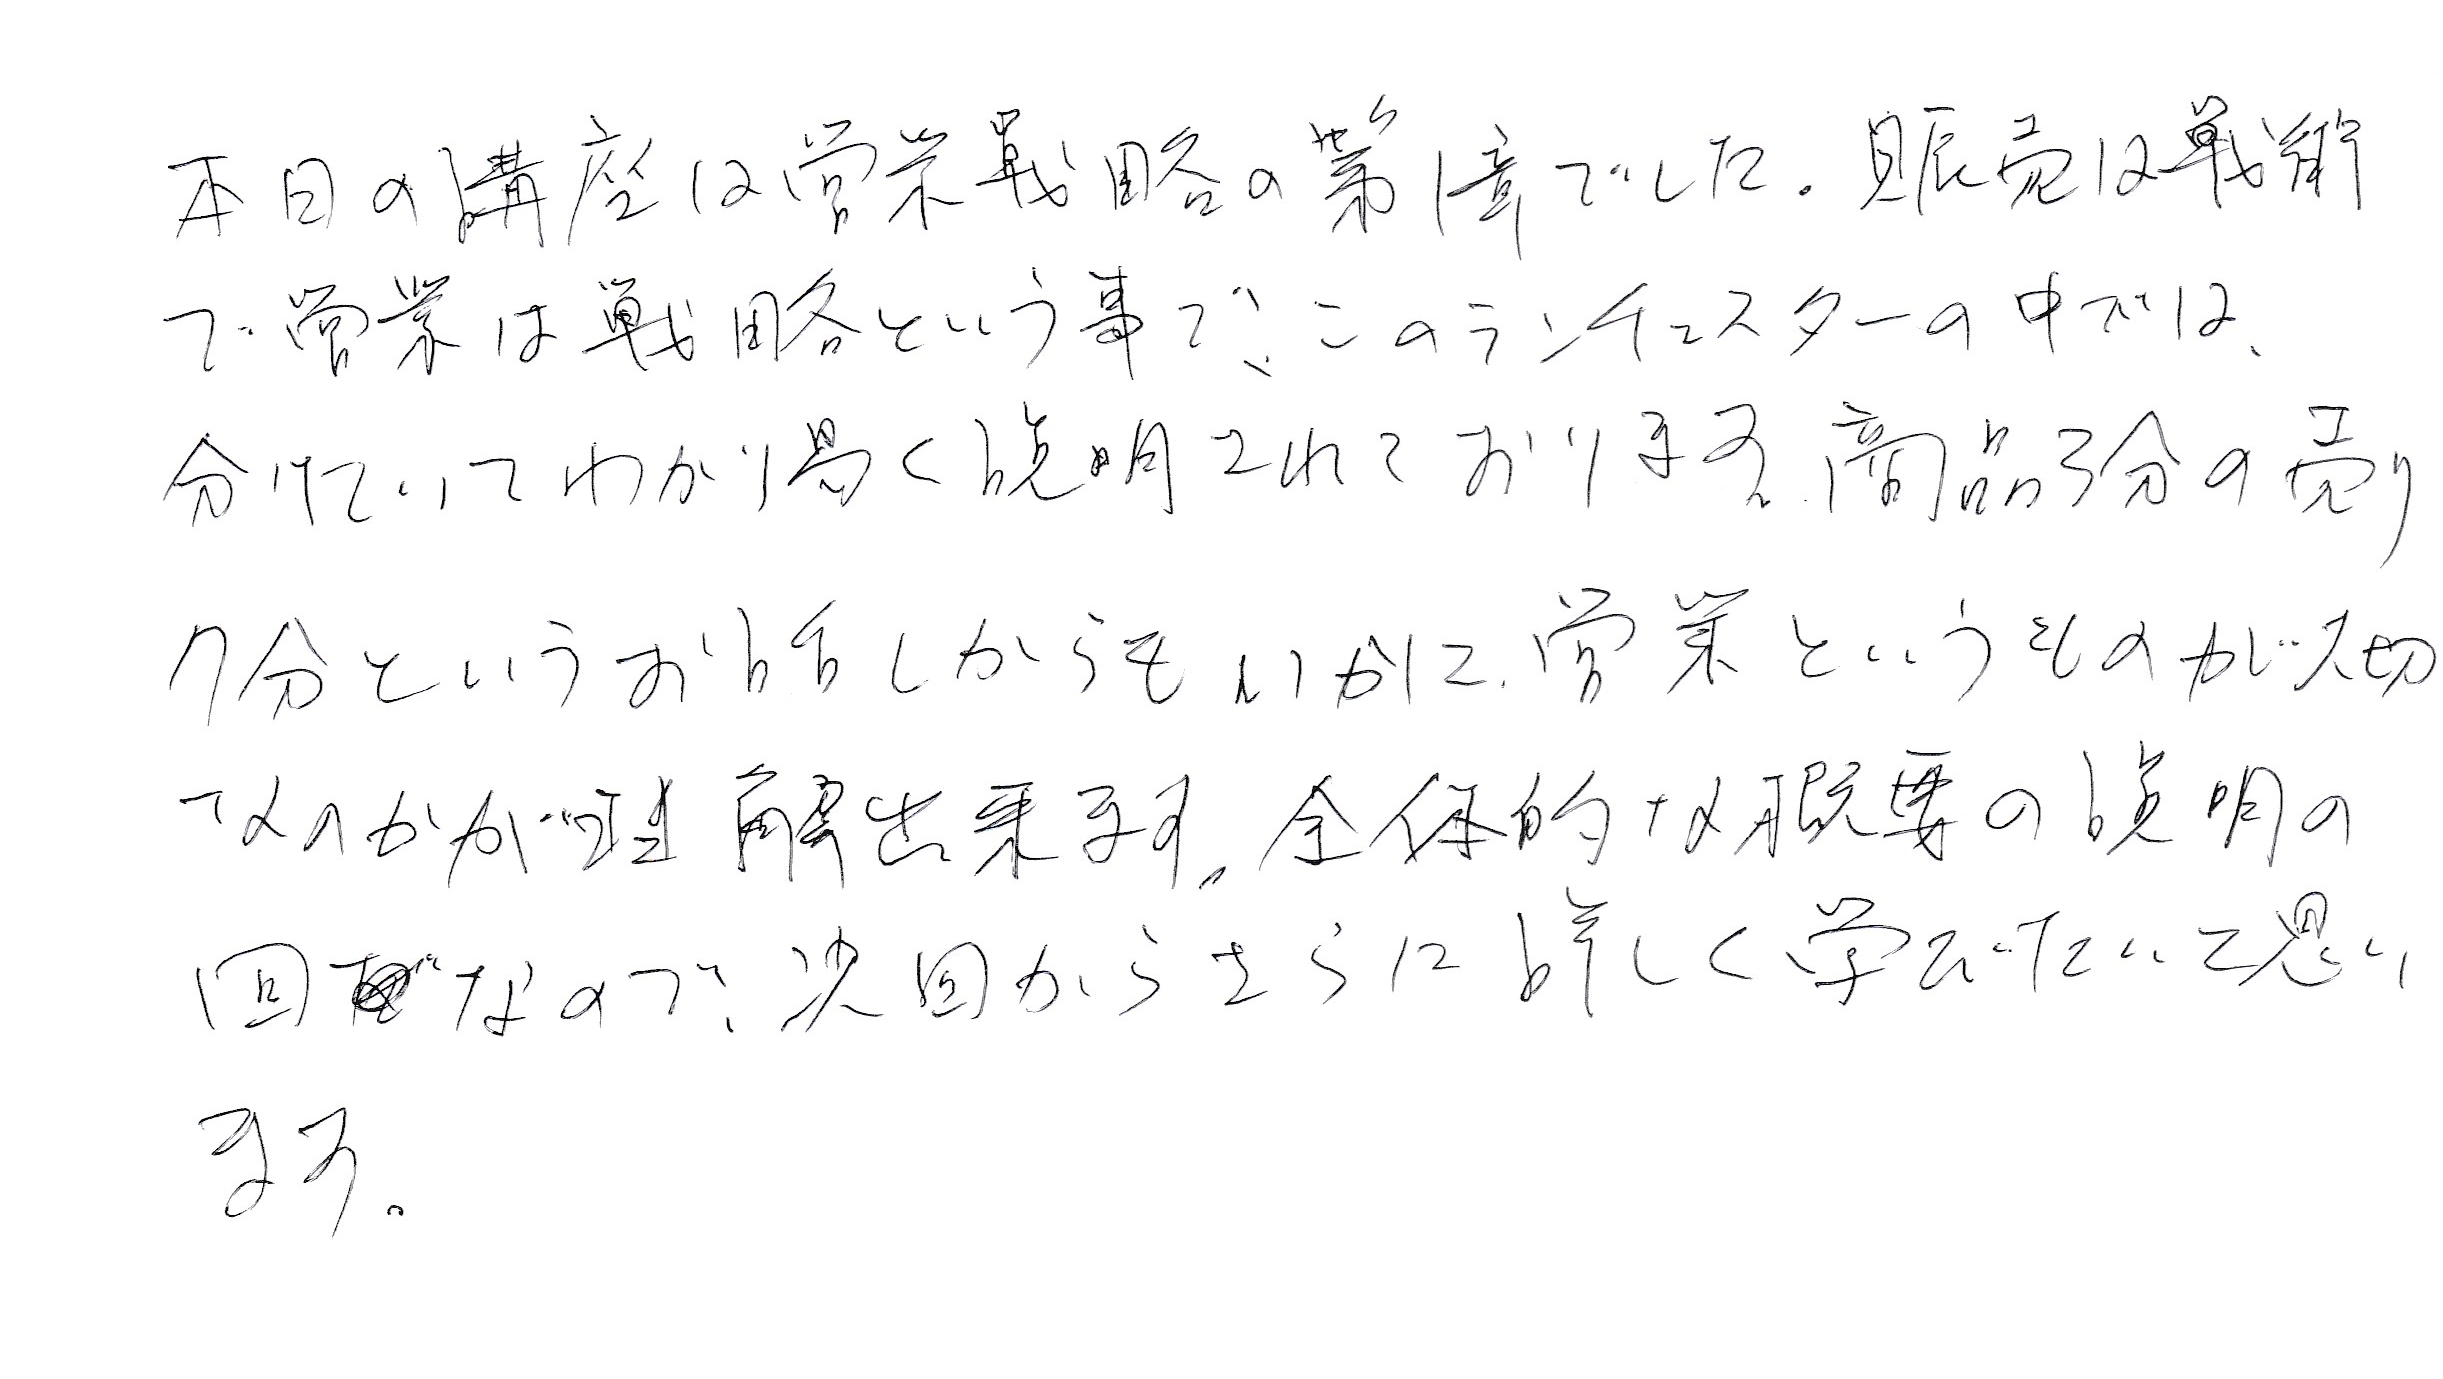 本日の講座は営業戦略の第1章でした。販売は戦術
で営業は戦略という事で、このランチェスターの中では、
分けていてわかり易く説明されております。商品3分の売り
7分というお話しからもいかに、営業というものが大切
なのかが理解出来ます。全体的な概要の説明の
回なので、次回からさらに詳しく学びたいと思い
ます。